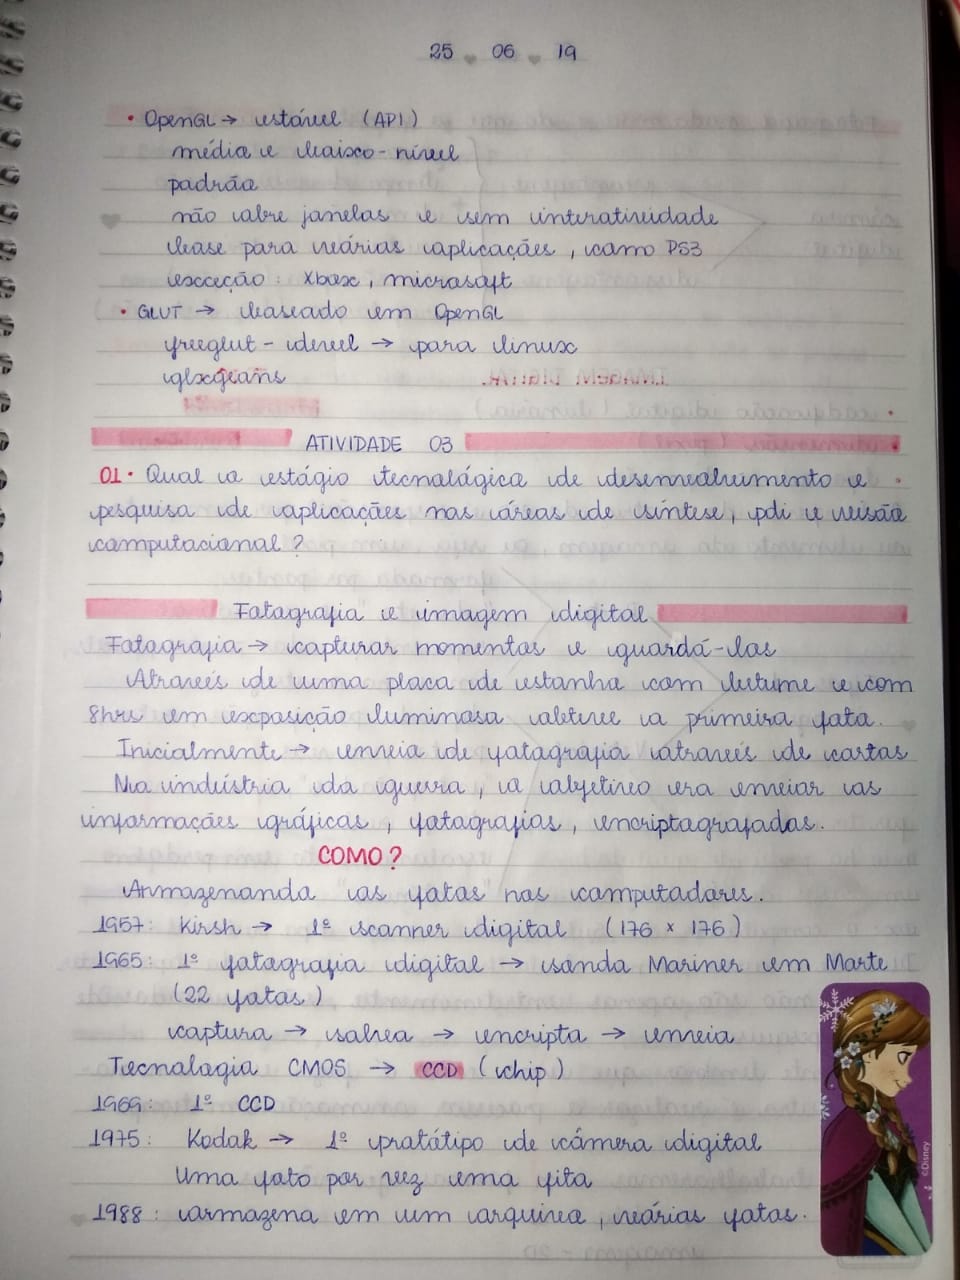 25 06 19
• OpenGL → estável (API)
média e baixo-nível
padrão
não abre janelas e sem interatividade
base para várias aplicações, como PS3
exceção: Xbox, microsoft
• GLUT → baseado em OpenGL
freeglut - devel → para linux
glxgears
ATIVIDADE 03
01• Qual o estágio tecnológico de desenvolvimento e
pesquisa de aplicações nas áreas de síntese, pdi e visão
computacional?
Fotografia e imagem digital
Fotografia → capturar momentos e guardá-los
Através de uma placa de estanho com betume e com
8hrs em exposição luminosa obteve a primeira foto.
Inicialmente → envio de fotografia através de cartas
Na indústria da guerra, o objetivo era enviar as
informações gráficas, fotografias, encriptografadas.
COMO?
Armazenando "as fotos" nos computadores.
1957: Kirsh → 1º scanner digital (176 × 176)
1965: 1º fotografia digital → sonda Mariner em Marte
(22 fotos)
captura → salva → encripta → envia
Tecnologia CMOS → CCD (chip)
1969: 1º CCD
1975: Kodak → 1º protótipo de câmera digital
Uma foto por vez uma fita
1988: armazena em um arquivo, várias fotos.
©Disney